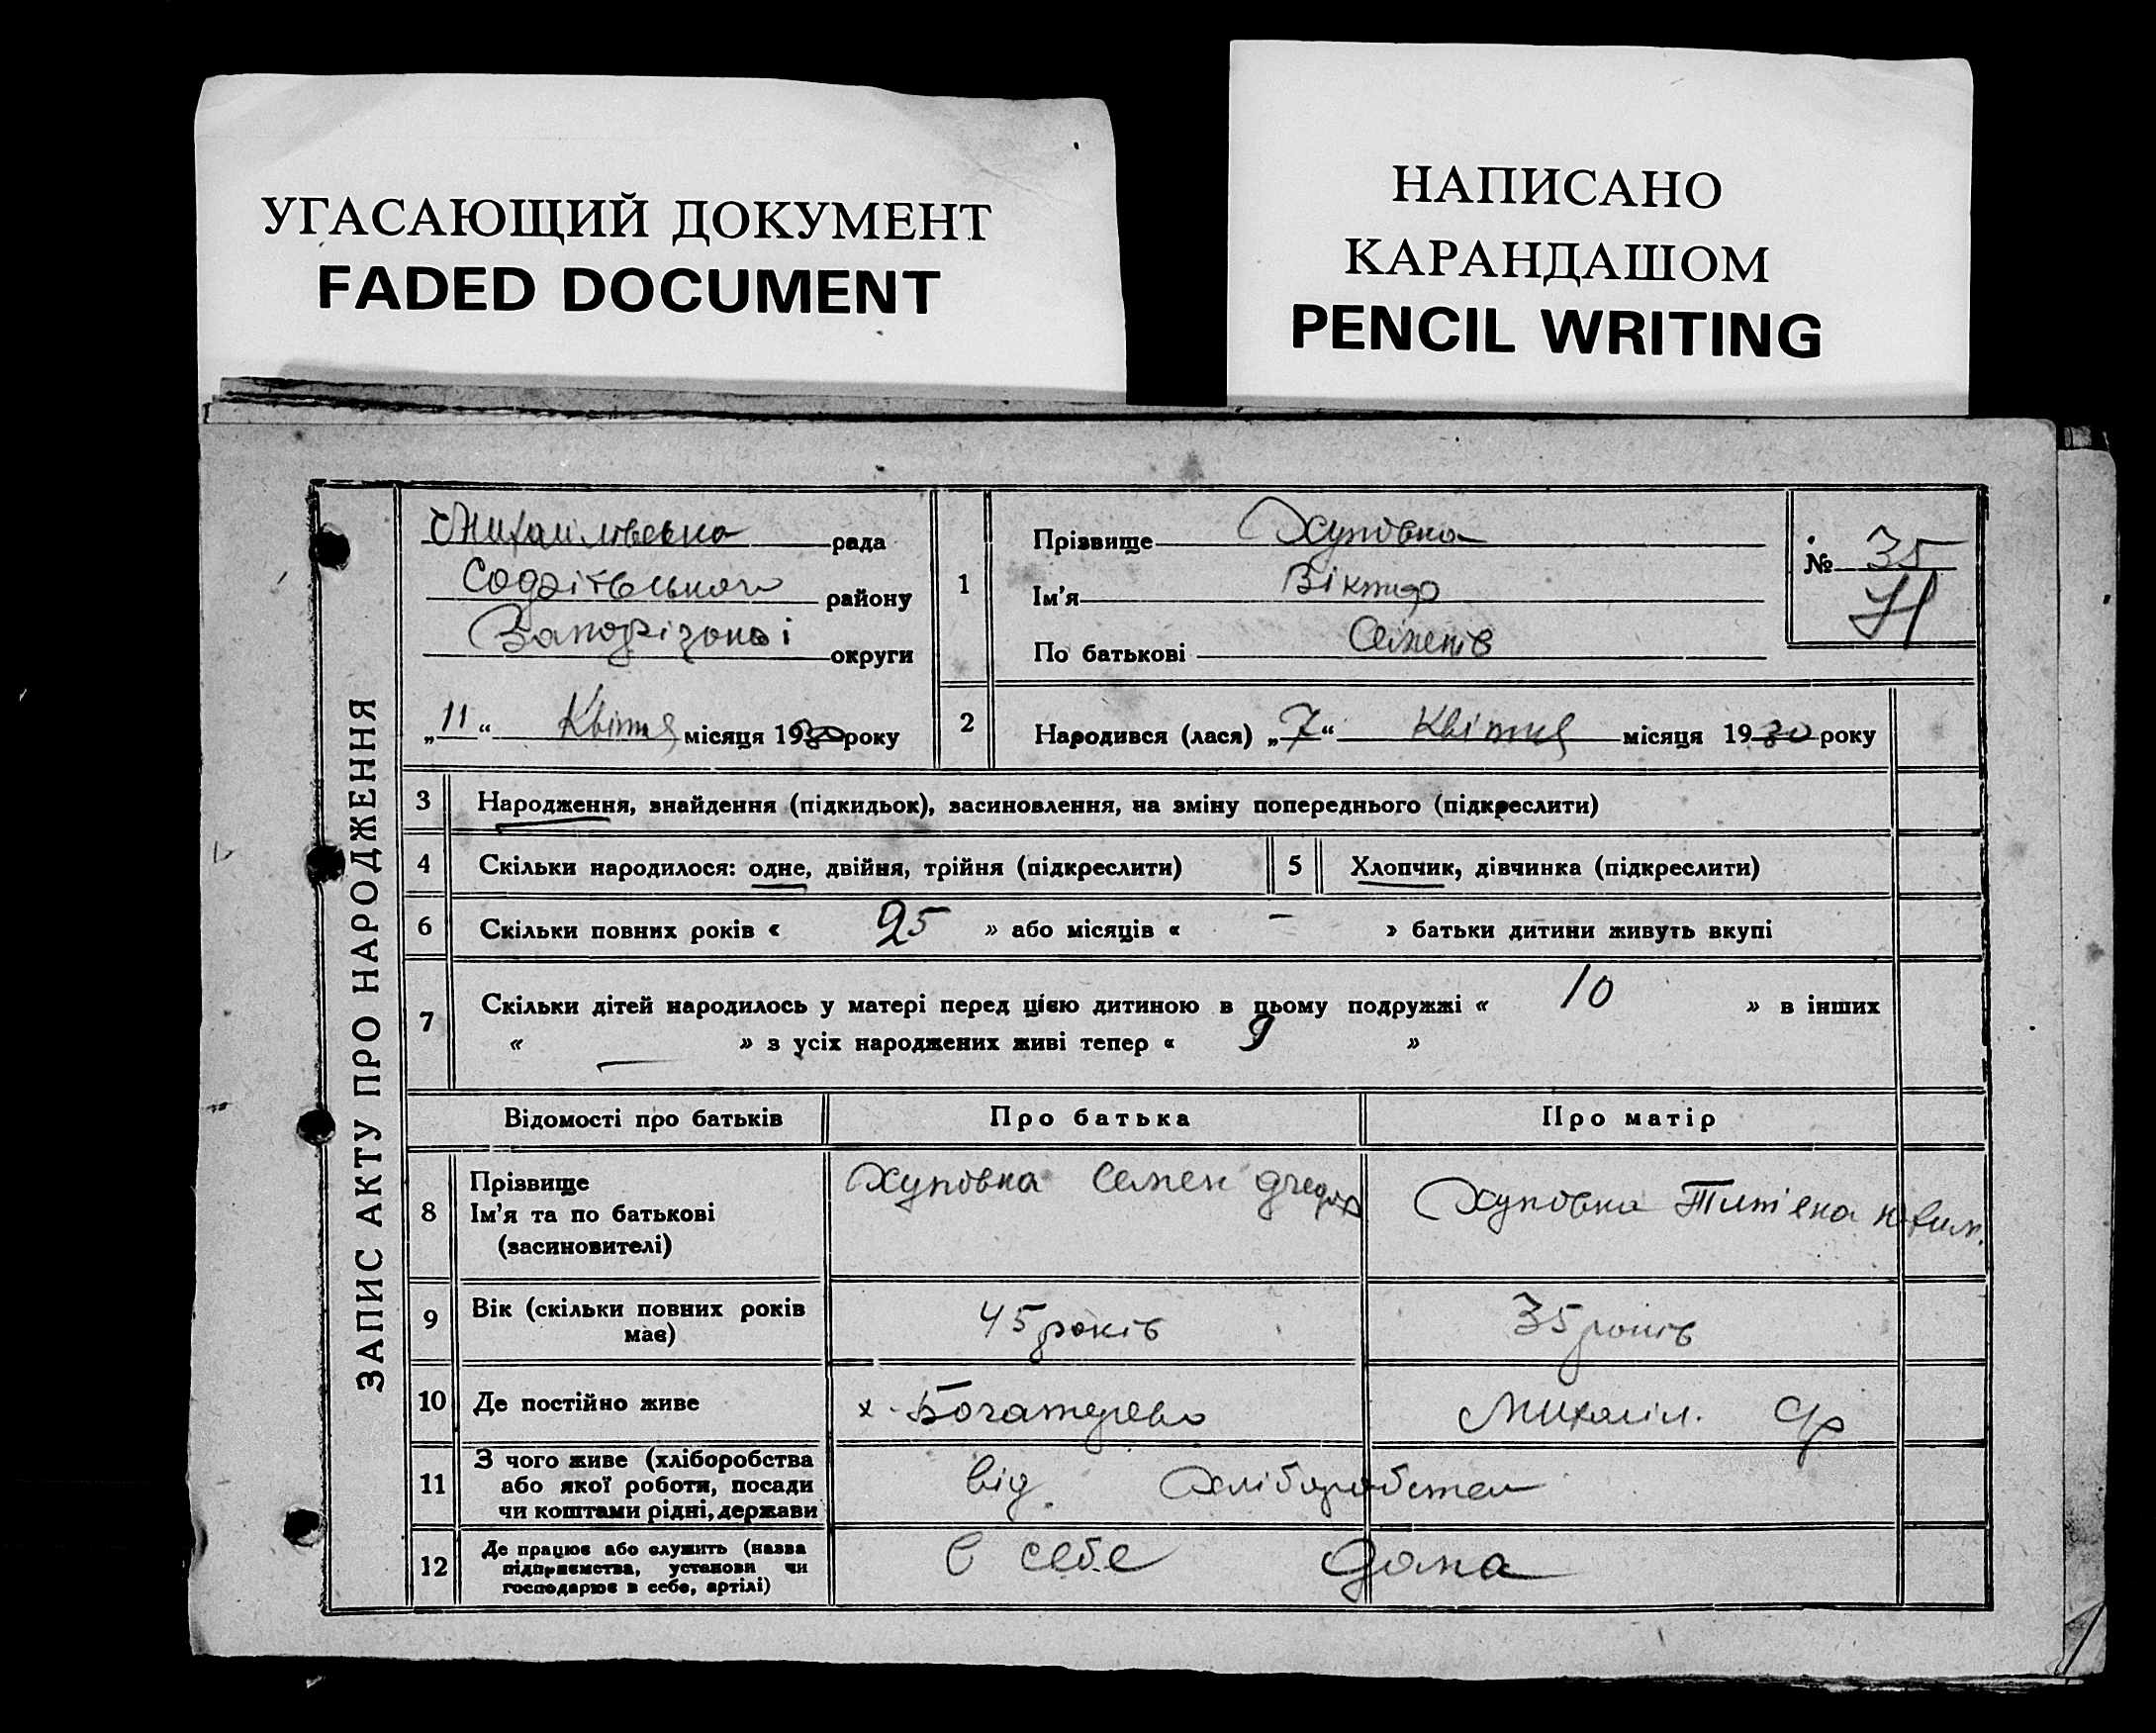 УГАСАЮЩИЙ ДОКУМЕНТ
FADED DOCUMENT
НАПИСАНО
КАРАНДАШОМ
PENCIL WRITING
ЗАПИС АКТУ ПРО НАРОДЖЕННЯ
Михайлівська рада
району
округи
„11“ Квітня місяця 1930 року
1
Прізвище Хуповка
Ім'я Віктор
По батькові Семенів
№ 35
2
Народився (лася) „7“ Квітня місяця 1930 року
3 Народження, знайдення (підкидьок), засиновлення, на зміну попереднього (підкреслити)
4 Скільки народилося: одне, двійня, трійня (підкреслити)
5 Хлопчик, дівчинка (підкреслити)
6 Скільки повних років « 25 » або місяців « – » батьки дитини живуть вкупі
7 Скільки дітей народилось у матері перед цією дитиною в цьому подружжі « 10 » в інших
« — » з усіх народжених живі тепер « 9 »
Відомості про батьків
Про батька
Про матір
8 Прізвище
Ім'я та по батькові
(засиновителі)
Хуповка Семен
Хуповка
9 Вік (скільки повних років
має)
45 років
35 років
10 Де постійно живе
х. Богатирево
Михайл.
11 З чого живе (хліборобства
або якої роботи, посади
чи коштами рідні, держави
від хліборобства
12 Де працює або служить (назва
підприємства, установи чи
господарює в себе, артілі)
в себе дома